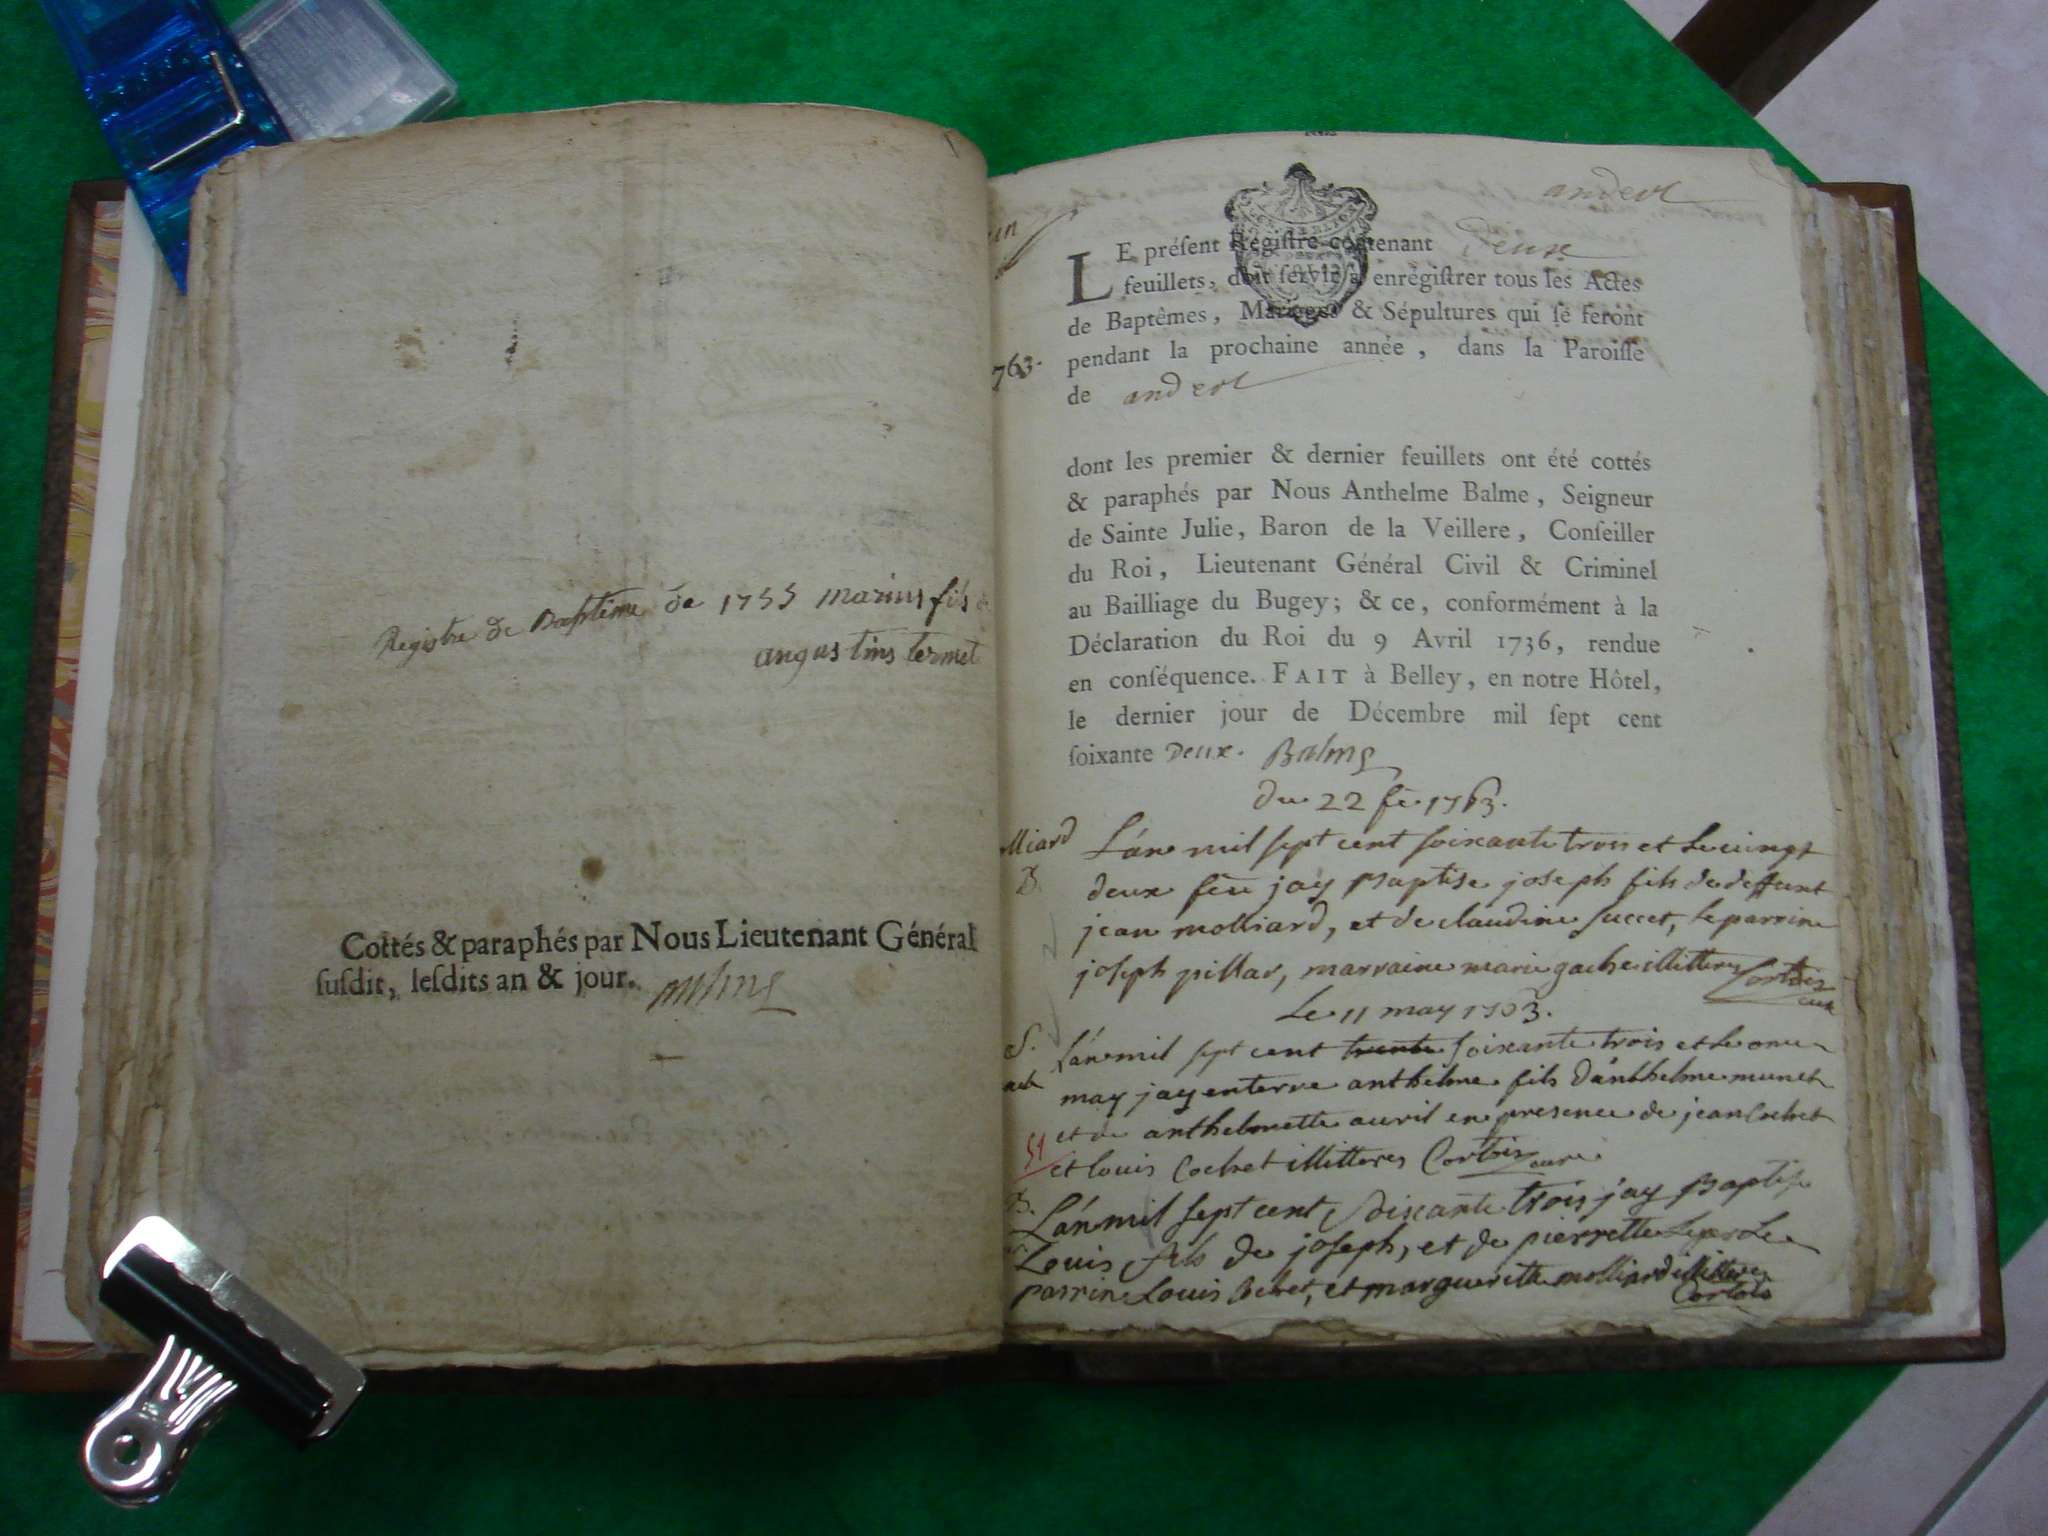 Registre de Baptème de 1755 marius fils
angustins termet
Cottés & paraphés par Nous Lieutenant Général
susdit, lesdits an & jour. Balme
andert
LE présent Régistre contenant Deux
feuillets, doit servir à enrégistrer tous les Actes
de Baptêmes, Mariages & Sépultures qui se feront
pendant la prochaine année, dans la Paroisse
763.
de andert
dont les premier & dernier feuillets ont été cottés
& paraphés par Nous Anthelme Balme, Seigneur
de Sainte Julie, Baron de la Veillere, Conseiller
du Roi, Lieutenant Général Civil & Criminel
au Bailliage du Bugey; & ce, conformément à la
Déclaration du Roi du 9 Avril 1736, rendue
en conséquence. FAIT à Belley, en notre Hôtel,
le dernier jour de Décembre mil sept cent
soixante Deux. Balme
du 22 fe 1763.
lliard
B.
L'an mil sept cent soixante trois et le vingt
deux fev jay Baptise joseph fils de deffunt
jean molliard, et de claudine succet, le parrin
joseph pillar, marraine marie gache illitteres Cortois
cure
Le 11 may 1763.
S.
L'an mil sept cent trente soixante trois et le onze
may jay enterre anthelme fils d'anthelme munet
et de anthelmette avril en presence de jean Cochet
51
et louis Cochet illitteres Cortois cure
B.
L'an mil sept cent soixante trois jay Baptise
Louis fils de joseph, et de pierrette
parrin Louis Cochet, et margueritte molliard illittere
Cortois